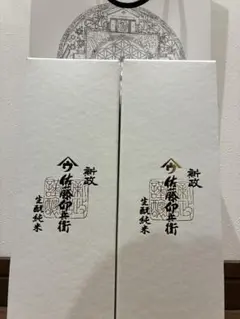 新政
佐藤卯兵衛
生酛純米
新政
佐藤卯兵衛
生酛純米